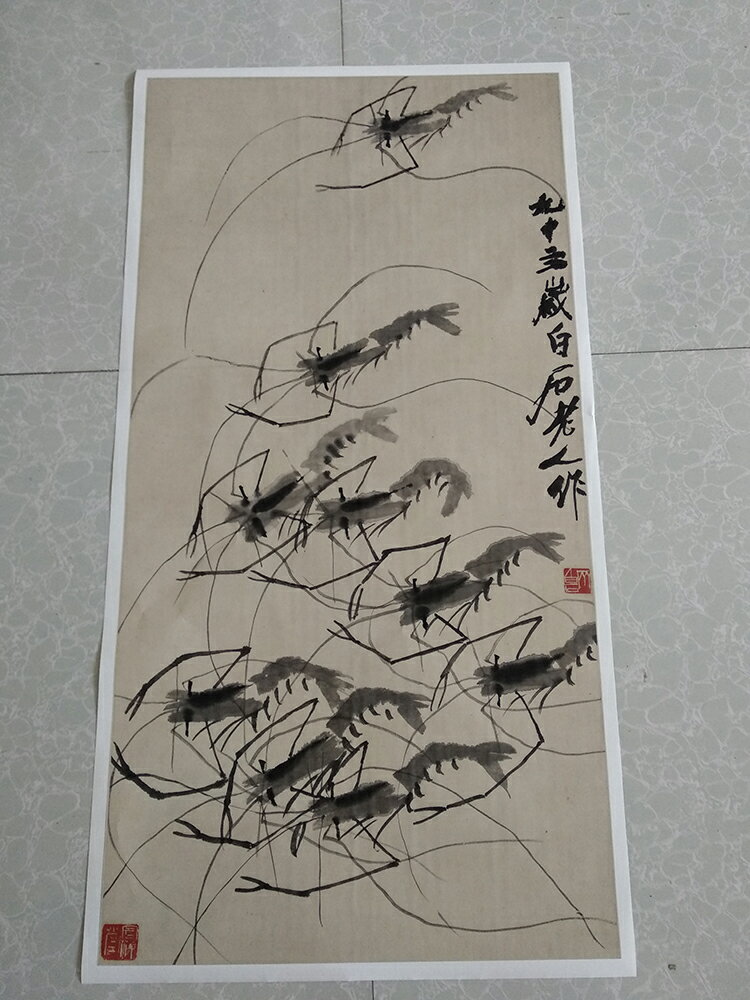 九十五歲白石老人作